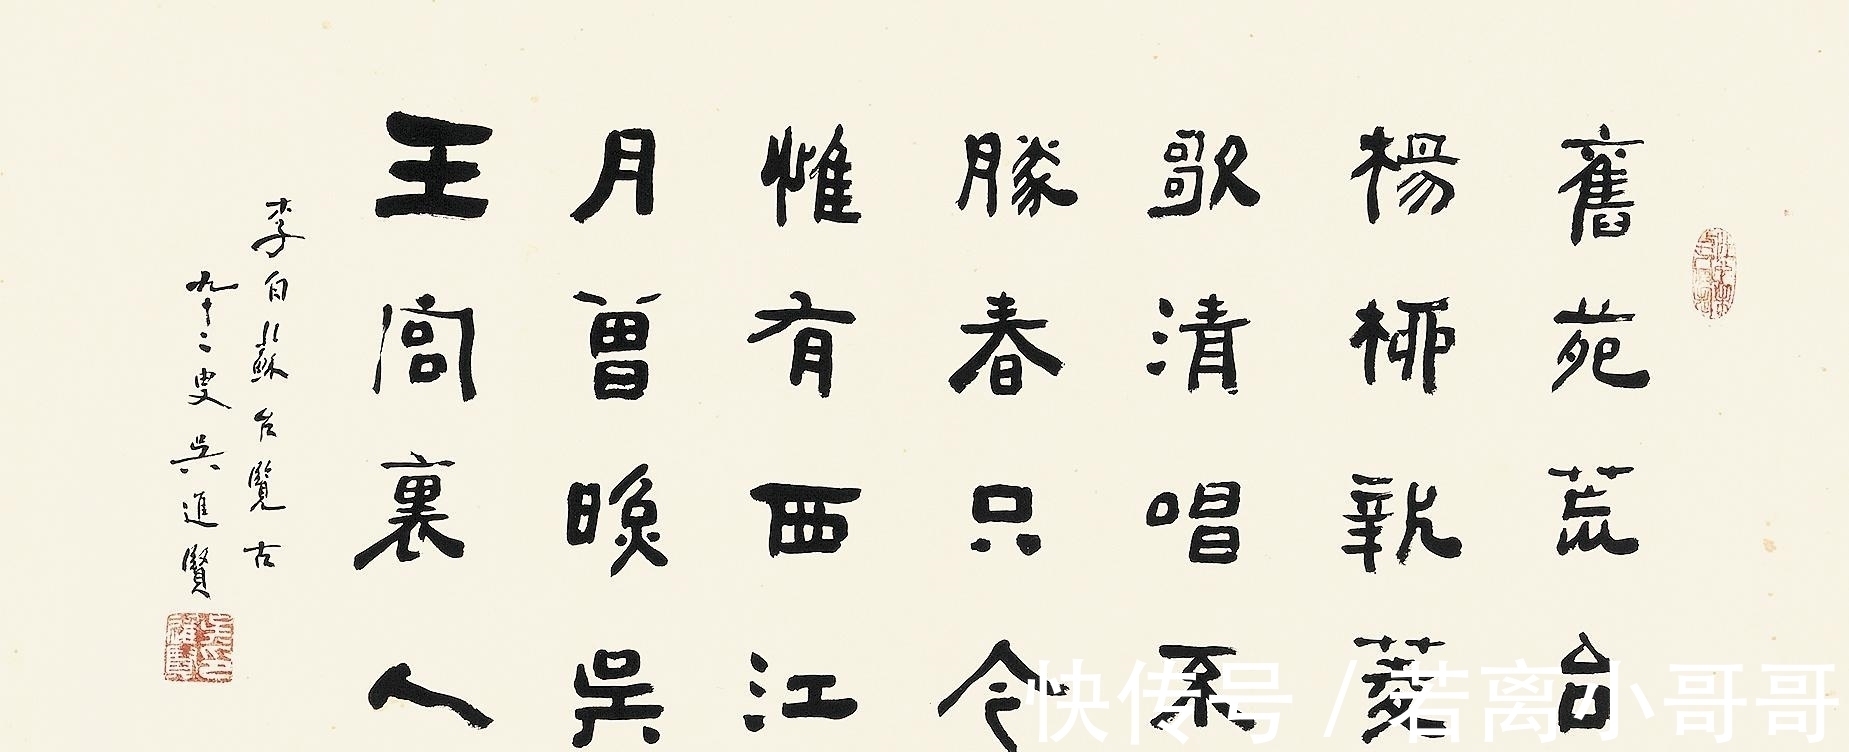 舊苑荒台
楊柳新菱
歌清唱不
勝春只今
惟有西江
月曾照吳
王宫裏人
李白蘇台覽古
九十二叟吳進賢
快传号 / 若离小哥哥